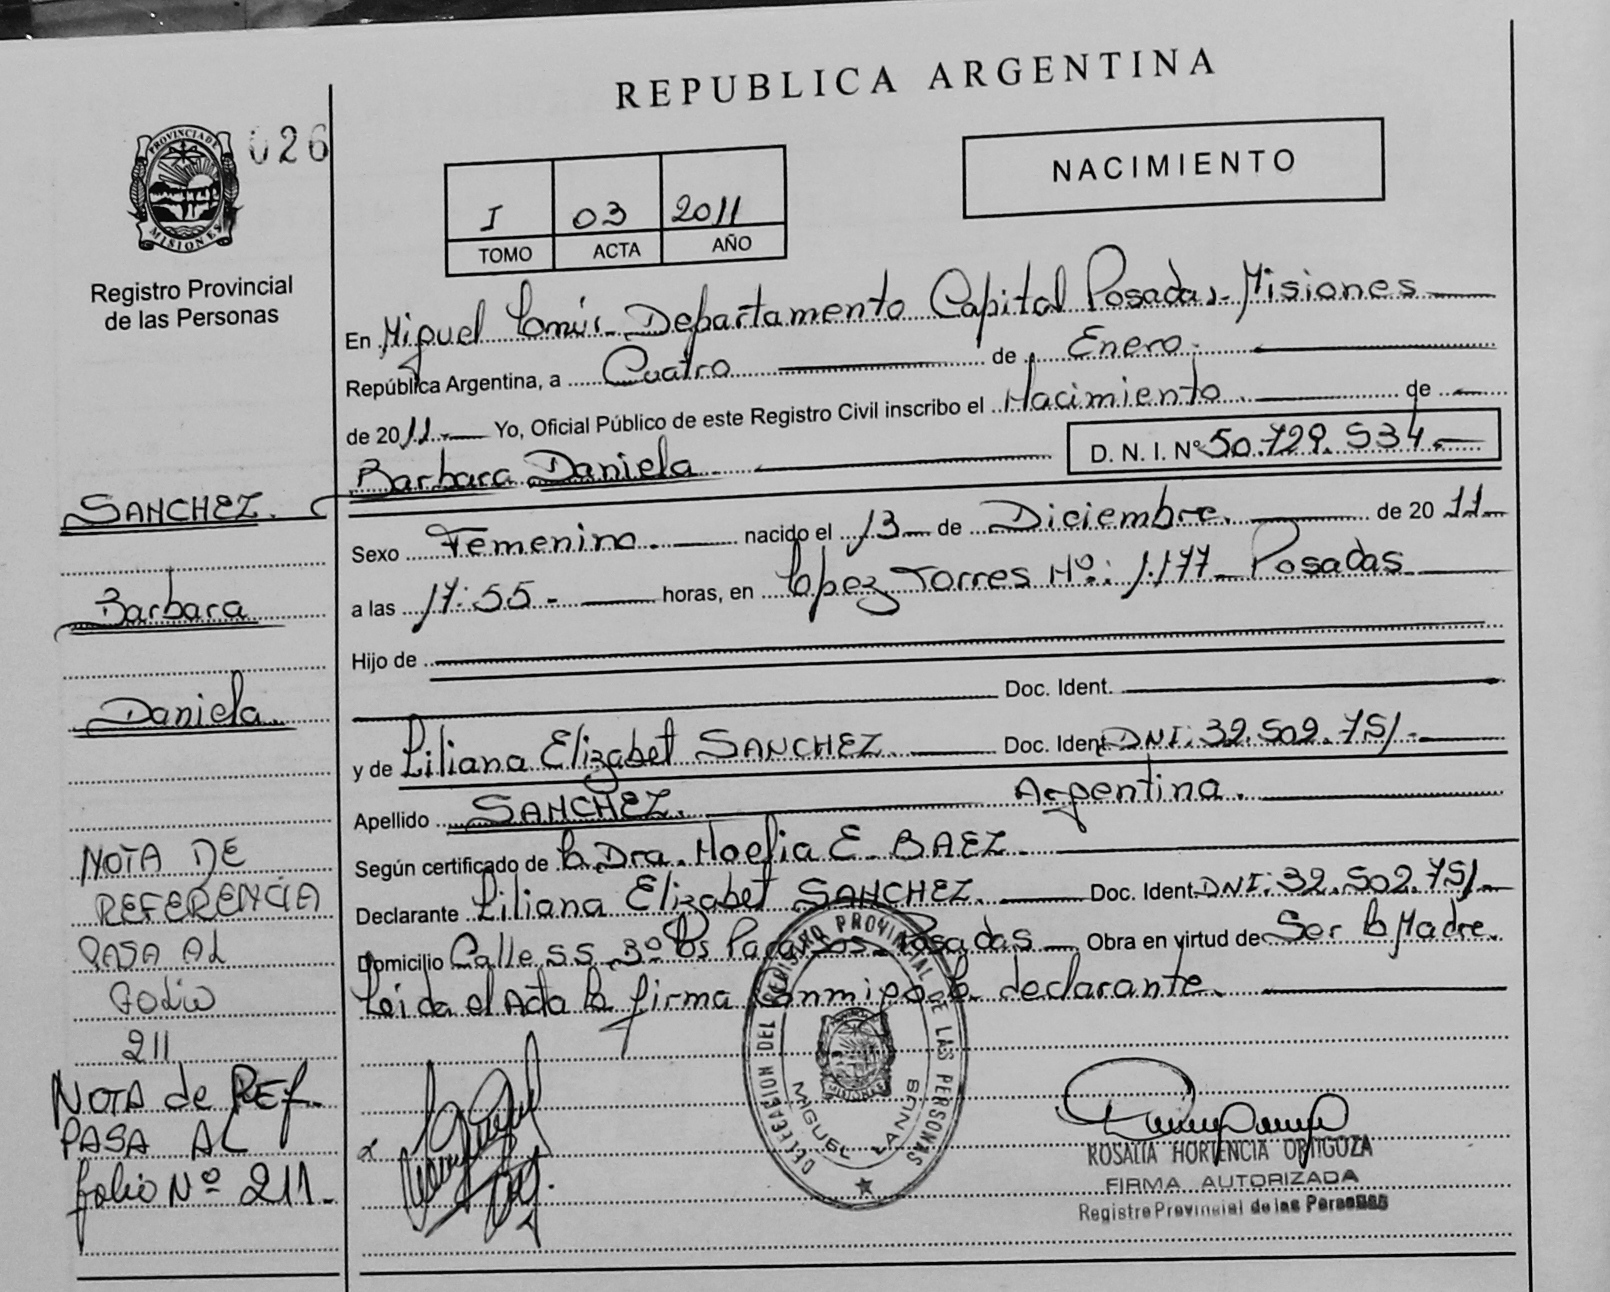 REPUBLICA ARGENTINA
PROVINCIA DE MISIONES
026
Registro Provincial
de las Personas
I 03 2011
TOMO ACTA AÑO
NACIMIENTO
En Miguel Lanús - Departamento Capital Posadas - Misiones
República Argentina, a Cuatro de Enero
de 2011 Yo, Oficial Público de este Registro Civil inscribo el Nacimiento de
Barbara Daniela D. N. I. Nº 50.729.934
Sexo Femenino. nacido el 13 de Diciembre. de 2011
a las 17:55 - horas, en Lopez Torres Nº: 1.177 - Posadas
Hijo de
Doc. Ident.
y de Liliana Elizabet SANCHEZ Doc. Ident. DNI: 32.502.751.
Apellido SANCHEZ. Argentina.
Según certificado de la Dra. Noelia E. BAEZ.
Declarante Liliana Elizabet SANCHEZ. Doc. Ident. DNI: 32.502.751
Domicilio Calle Posadas Obra en virtud de Ser la Madre.
Leida el Acta la firma Conmigo la declarante.
SANCHEZ.
Barbara
Daniela
NOTA DE
REFERENCIA
PASA AL
FOLIO
211
NOTA de REF.
PASA AL
folio Nº 211
DELEGACION DEL REGISTRO PROVINCIAL DE LAS PERSONAS
MIGUEL LANUS
ROSALIA HORTENCIA ORTIGOZA
FIRMA AUTORIZADA
Registro Provincial de las Personas